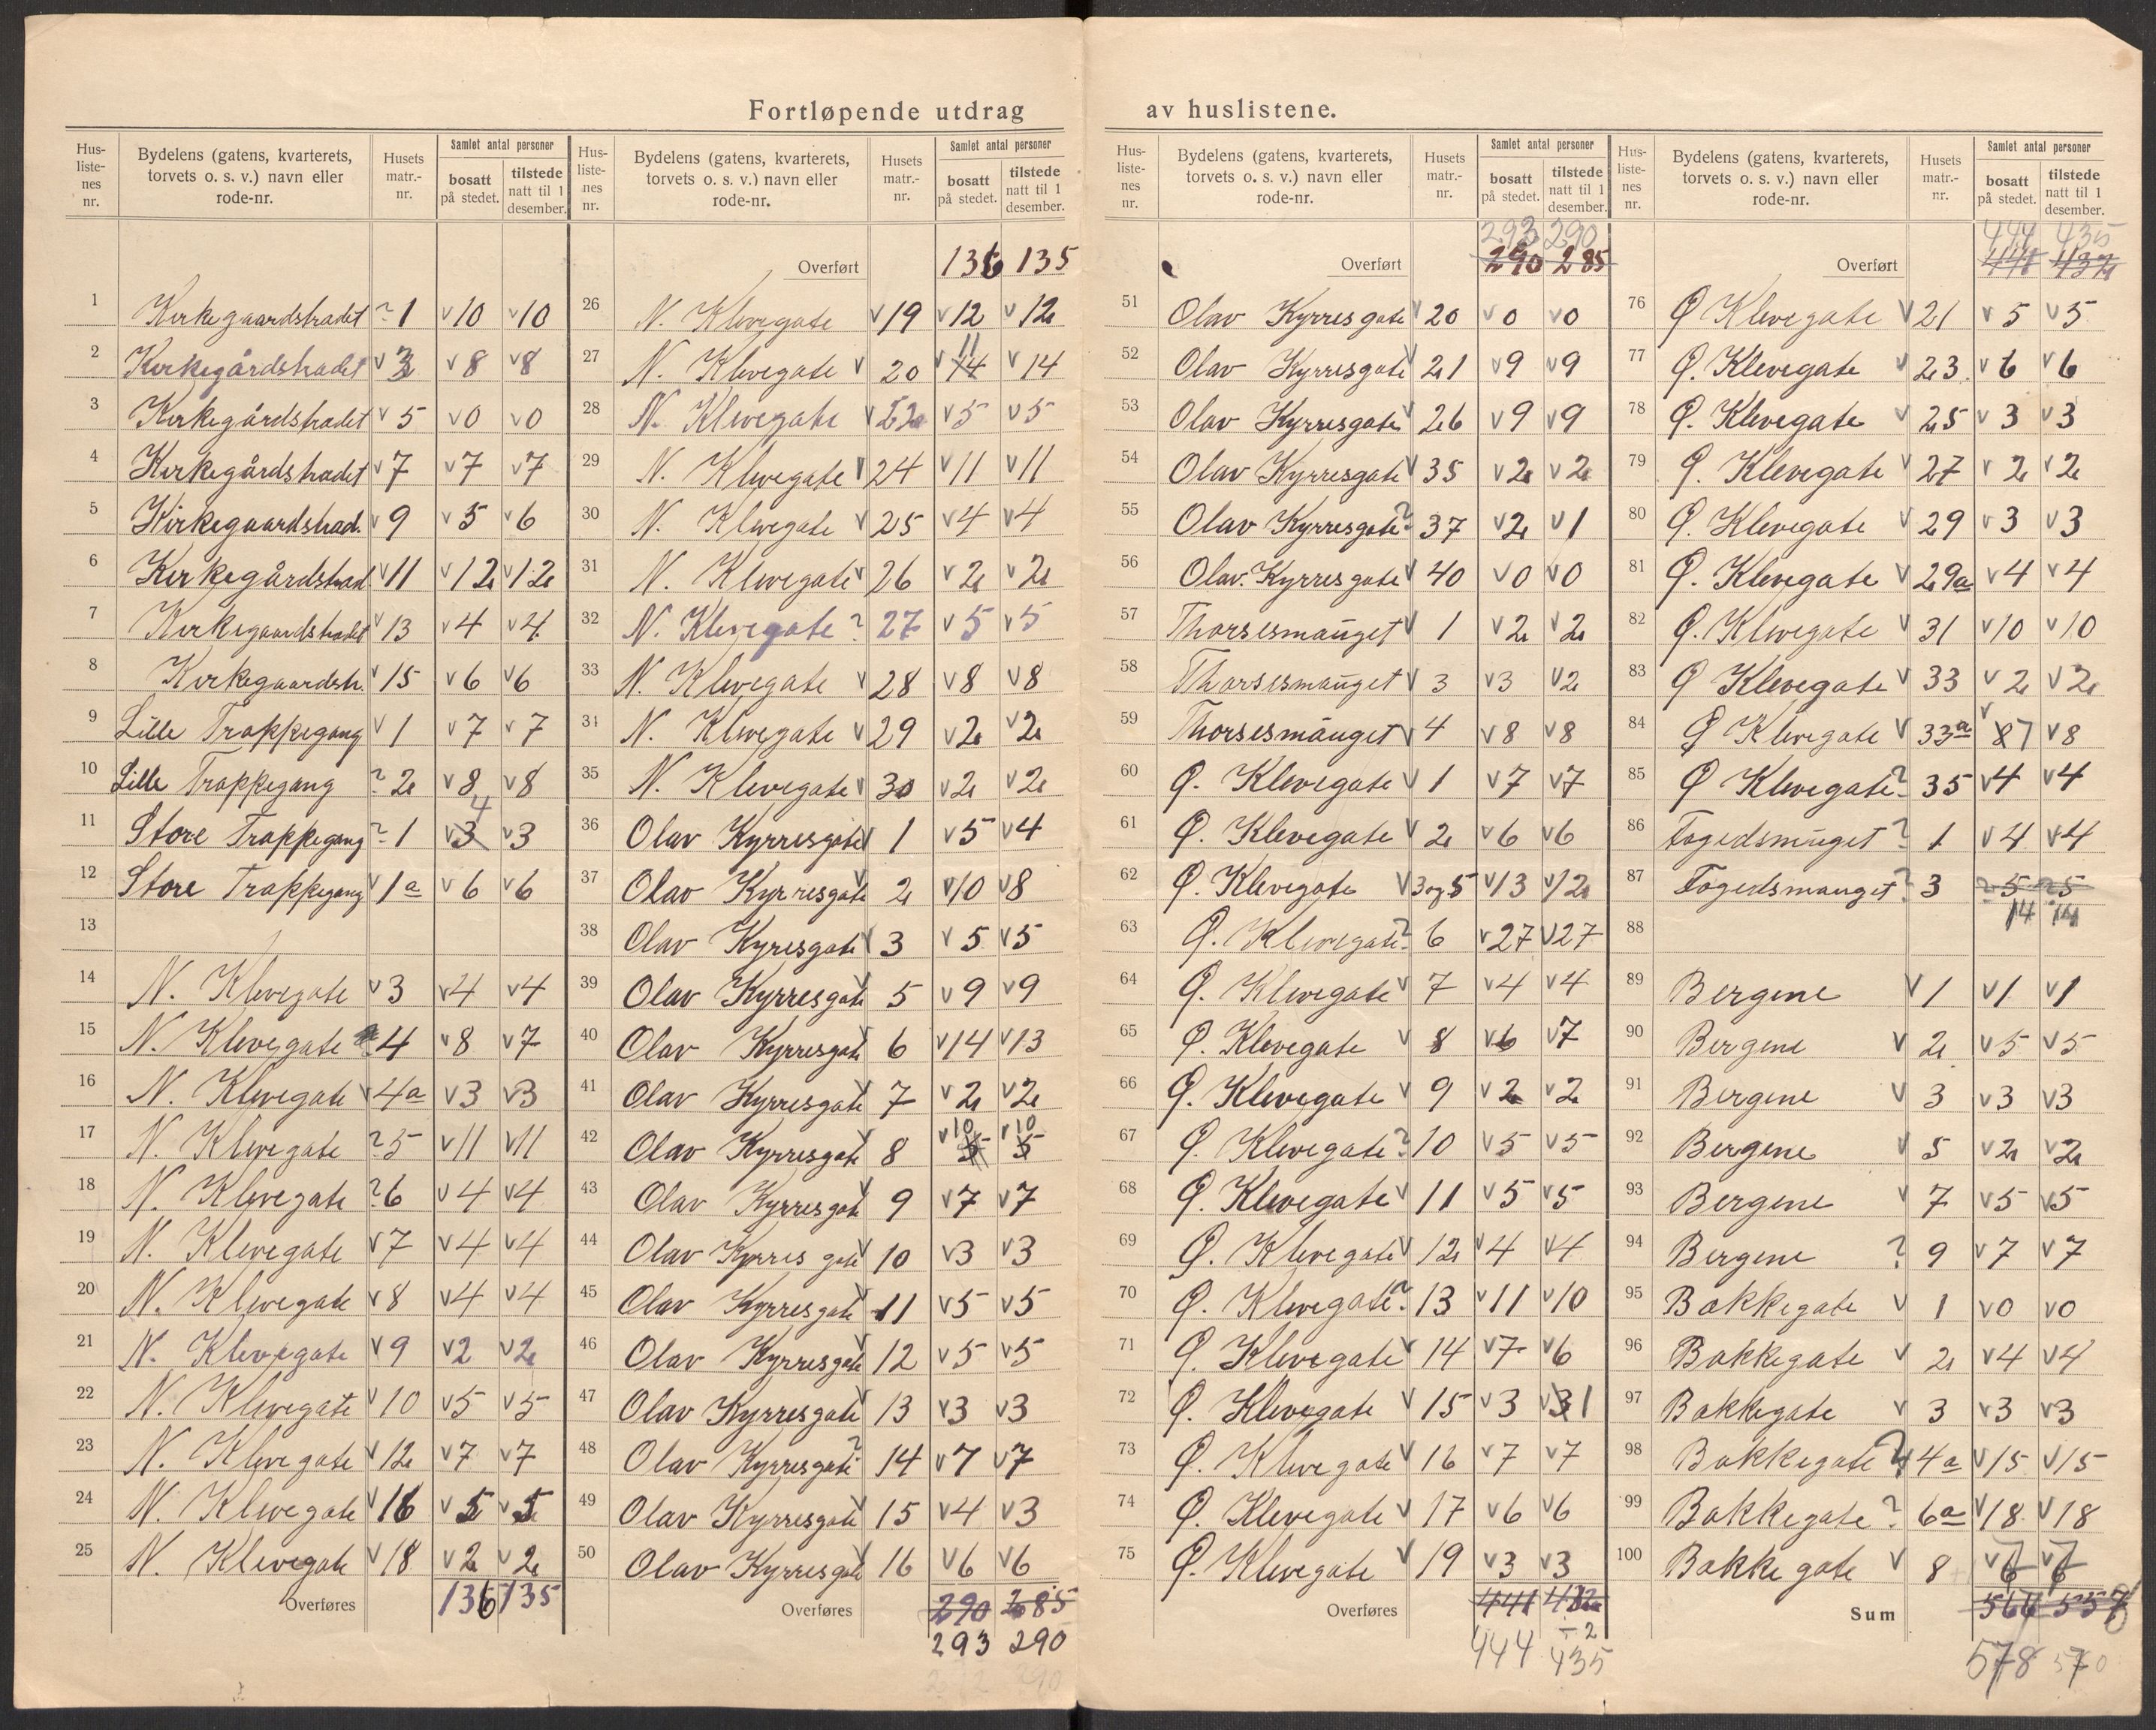 Fortløpende utdrag av huslistene.
Hus-liste-nes nr. | Bydelens (gatens, kvarterets, torvets o. s. v.) navn eller rode-nr. | Husets matr.-nr. | Samlet antal personer bosatt på stedet. | tilstede natt til 1 desember.
1 Kirkegaardstradet ? 1 v 10 v 10
2 Kirkegårdstradet v 3 v 8 v 8
3 Kirkegårdstradet v 5 v 0 v 0
4 Kirkegårdstradet v 7 v 7 v 7
5 Kirkegaardstrad. v 9 v 5 v 6
6 Kirkegårdstrad v 11 v 12 v 12
7 Kirkegaardstradet v 13 v 4 v 4
8 Kirkegaardstr. v 15 v 6 v 6
9 Lille Trappegang v 1 v 7 v 7
10 Lille Trappegang ? 2 v 8 v 8
11 Store Trappegang ? 1 v 3 4 v 3
12 Store Trappegang v 1a v 6 v 6
13
14 N. Klevegate v 3 v 4 v 4
15 N. Klevegate 4 v 8 v 7
16 N. Klevegate v 4a v 3 v 3
17 N. Klevegate ? 5 v 11 v 11
18 N. Klevegate ? 6 v 4 v 4
19 N. Klevegate v 7 v 4 v 4
20 N. Klevegate v 8 v 4 v 4
21 N. Klevegate v 9 v 2 v 2
22 N. Klevegate v 10 v 5 v 5
23 N. Klevegate v 12 v 7 v 7
24 N. Klevegate v 16 v 5 v 5
25 N. Klevegate v 18 v 2 v 2
Overføres 136 135
Hus-liste-nes nr. | Bydelens (gatens, kvarterets, torvets o. s. v.) navn eller rode-nr. | Husets matr.-nr. | Samlet antal personer bosatt på stedet. | tilstede natt til 1 desember.
Overført 136 135
26 N. Klevegate v 19 v 12 v 12
27 N. Klevegate v 20 v 14 11 v 14
28 N. Klevegate v v 5 v 5
29 N. Klevegate v 24 v 11 v 11
30 N. Klevegate v 25 v 4 v 4
31 N. Klevegate v 26 v 2 v 2
32 N. Klevegate ? 27 v 5 v 5
33 N. Klevegate v 28 v 8 v 8
34 N. Klevegate v 29 v 2 v 2
35 N. Klevegate v 30 v 2 v 2
36 Olav Kyrresgate v 1 v 5 v 4
37 Olav Kyrresgate v 2 v 10 v 8
38 Olav Kyresgate v 3 v 5 v 5
39 Olav Kyrresgate v 5 v 9 v 9
40 Olav Kyrresgate v 6 v 14 v 13
41 Olav Kyrresgate v 7 v 2 v 2
42 Olav Kyrresgate v 8 v 10 5 v 10 5
43 Olav Kyrresgate v 9 v 7 v 7
44 Olav Kyrres gate v 10 v 3 v 3
45 Olav Kyrresgate v 11 v 5 v 5
46 Olav Kyrresgate v 12 v 5 v 5
47 Olav Kyrresgate v 13 v 3 v 3
48 Olav Kyrresgate ? 14 v 7 v 7
49 Olav Kyrresgate v 15 v 4 v 3
50 Olav Kyrresgate v 16 v 6 v 6
Overføres 290 285
293 290
Hus-liste-nes nr. | Bydelens (gatens, kvarterets, torvets o. s. v.) navn eller rode-nr. | Husets matr.-nr. | Samlet antal personer bosatt på stedet. | tilstede natt til 1 desember.
293 290
Overført 290 285
51 Olav Kyrres gate v 20 v 0 v 0
52 Olav Kyrresgate v 21 v 9 v 9
53 Olav Kyrresgate v 26 v 9 v 9
54 Olav Kyrresgate v 35 v 2 v 2
55 Olav Kyrresgate ? 37 v 2 v 1
56 Olav. Kyrres gate v 40 v 0 v 0
57 Thorsesmauget v 1 v 2 v 2
58 Thorsesmauget v 3 v 3 v 2
59 Thorsesmauget v 4 v 8 v 8
60 Ø. Klevegate v 1 v 7 v 7
61 Ø. Klevegate v 2 v 6 v 6
62 Ø. Klevegate v 3 og 5 v 13 v 12
63 Ø. Klevegate ? 6 v 27 v 27
64 Ø. Klevegate v 7 v 4 v 4
65 Ø. Klevegate v 8 v 6 v 7
66 Ø. Klevegate v 9 v 2 v 2
67 Ø. Klevegate ? 10 v 5 v 5
68 Ø. Klevegate v 11 v 5 v 5
69 Ø. Klevegate v 12 v 4 v 4
70 Ø. Klevegate ? 13 v 11 v 10
71 Ø. Klevegate v 14 v 7 v 6
72 Ø. Klevegate v 15 v 3 v 3 1
73 Ø. Klevegate v 16 v 7 v 7
74 Ø. Klevegate v 17 v 6 v 6
75 Ø. Klevegate v 19 v 3 v 3
Overføres 441 432
- 2
444 435
Hus-liste-nes nr. | Bydelens (gatens, kvarterets, torvets o. s. v.) navn eller rode-nr. | Husets matr.-nr. | Samlet antal personer bosatt på stedet. | tilstede natt til 1 desember.
444 435
Overført 441 432
76 Ø Klevegate v 21 v 5 v 5
77 Ø. Klevegate v 23 v 6 v 6
78 Ø. Klevegate v 25 v 3 v 3
79 Ø. Klevegate v 27 v 2 v 2
80 Ø. Klevegate v 29 v 3 v 3
81 Ø. Klevegate v 29a v 4 v 4
82 Ø. Klevegate v 31 v 10 v 10
83 Ø Klevegate v 33 v 2 v 2
84 Ø Klevegate v 33a v 8 7 v 8
85 Ø Klevegate ? 35 v 4 v 4
86 Fogedsmuget ? 1 v 4 v 4
87 Fogedsmauget ? 3 ? 5 ? 5
14 14
88
89 Bergene v 1 v 1 v 1
90 Bergene v 2 v 5 v 5
91 Bergene v 3 v 3 v 3
92 Bergene v 5 v 2 v 2
93 Bergene v 7 v 5 v 5
94 Bergene ? 9 v 7 v 7
95 Bakkegate v 1 v 0 v 0
96 Bakkegate v 2 v 4 v 4
97 Bakkegate v 3 v 3 v 3
98 Bakkegate ? 4a v 15 v 15
99 Bakkegate ? 6a v 18 v 18
100 Bakke gate v 8 v 7 6 v 7 6
Sum
578 570